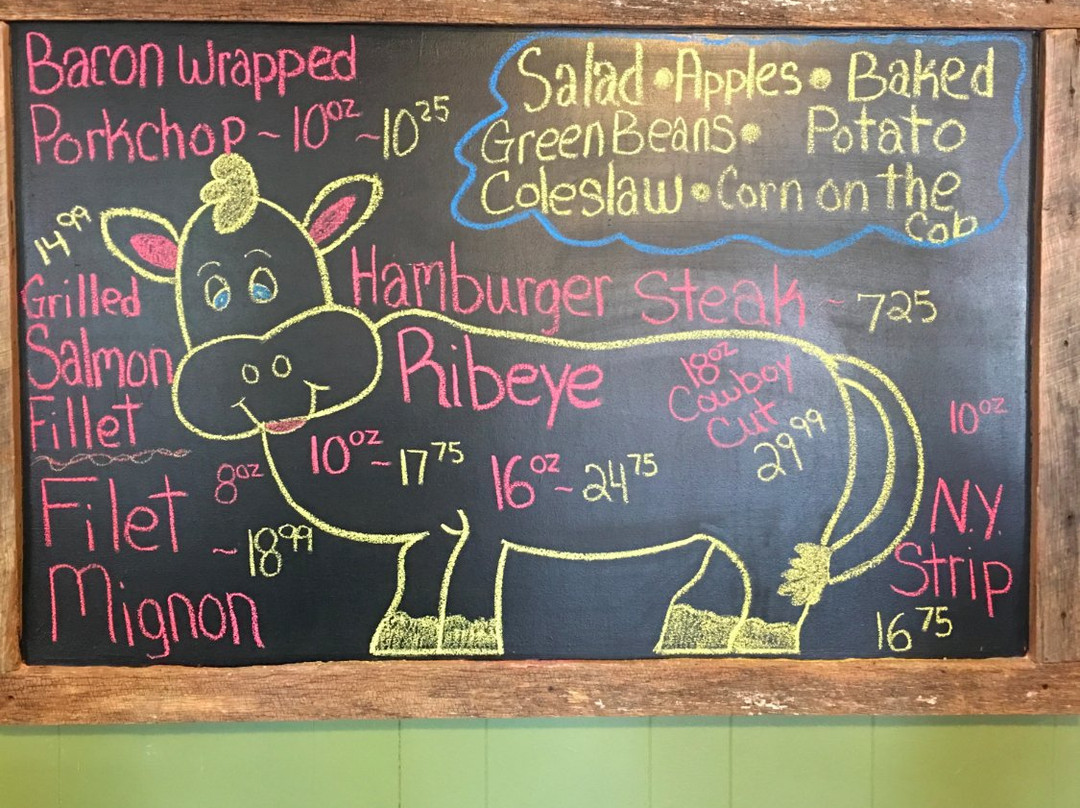 Bacon Wrapped
Porkchop ~ 10oz ~ 10 25
Salad • Apples • Baked
Green Beans • Potato
Coleslaw • Corn on the
Cob
14 99
Grilled
Salmon
Fillet
Hamburger Steak ~ 7 25
Ribeye
10oz ~ 17 75
16oz ~ 24 75
18oz
Cowboy
Cut
29 99
8oz
Filet
~ 18 99
Mignon
10oz
N.Y.
Strip
16 75